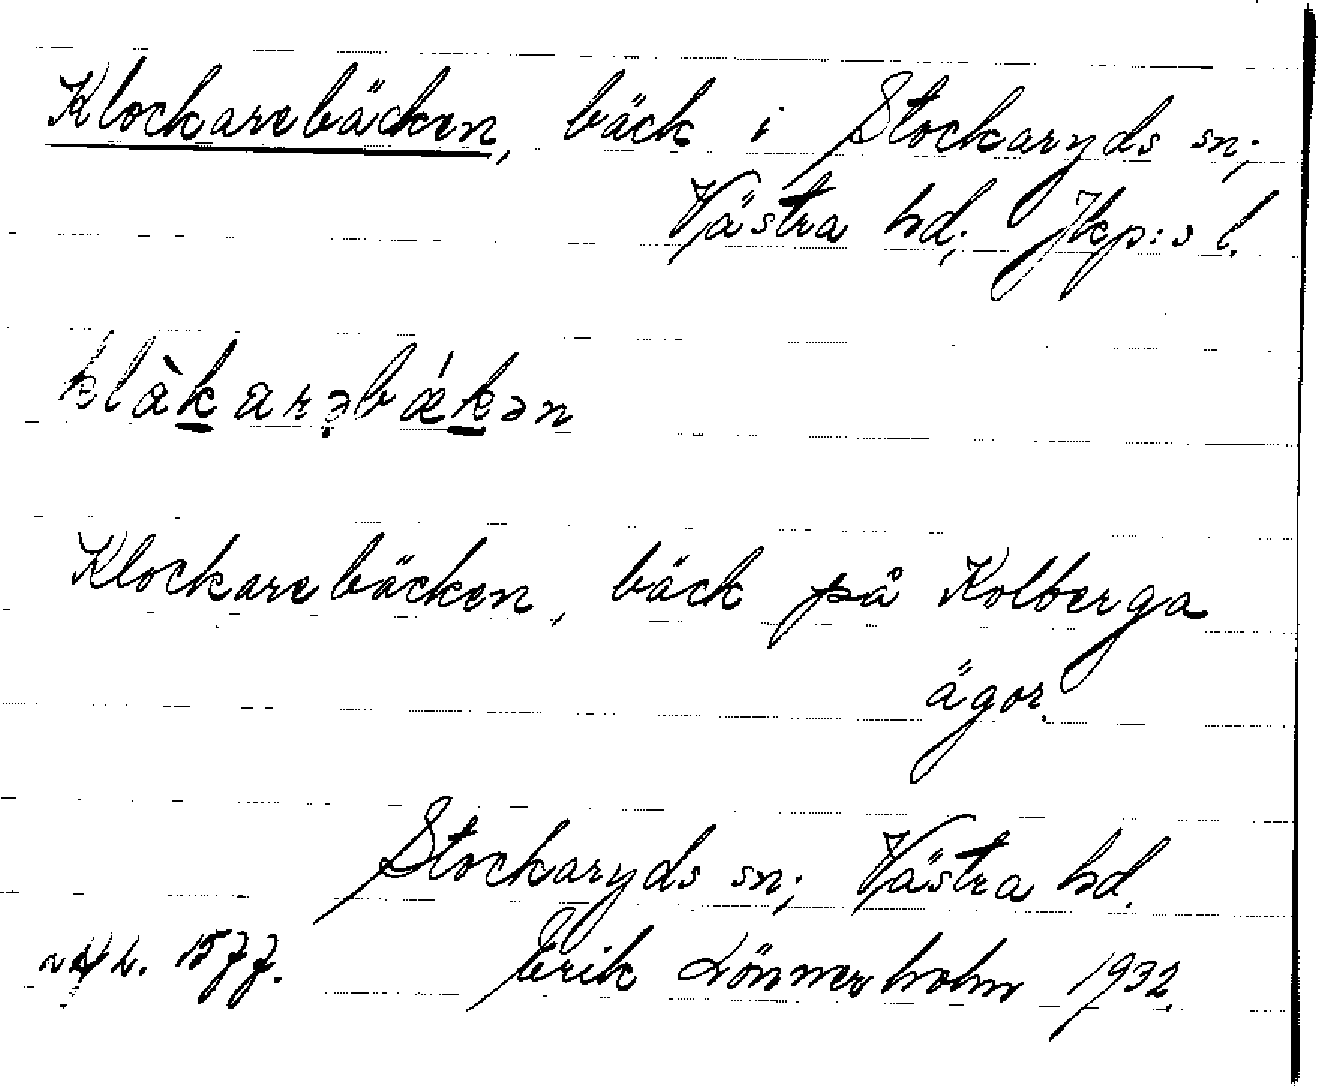 Klockarebäcken, bäck i Stockaryds sn;
Västra hd; Jkp:s l.
klàkarəbǽkən
Klockarebäcken, bäck på Kolberga
ägor.
Stockaryds sn; Västra hd.
1577. Erik Lönnerholm 1932.